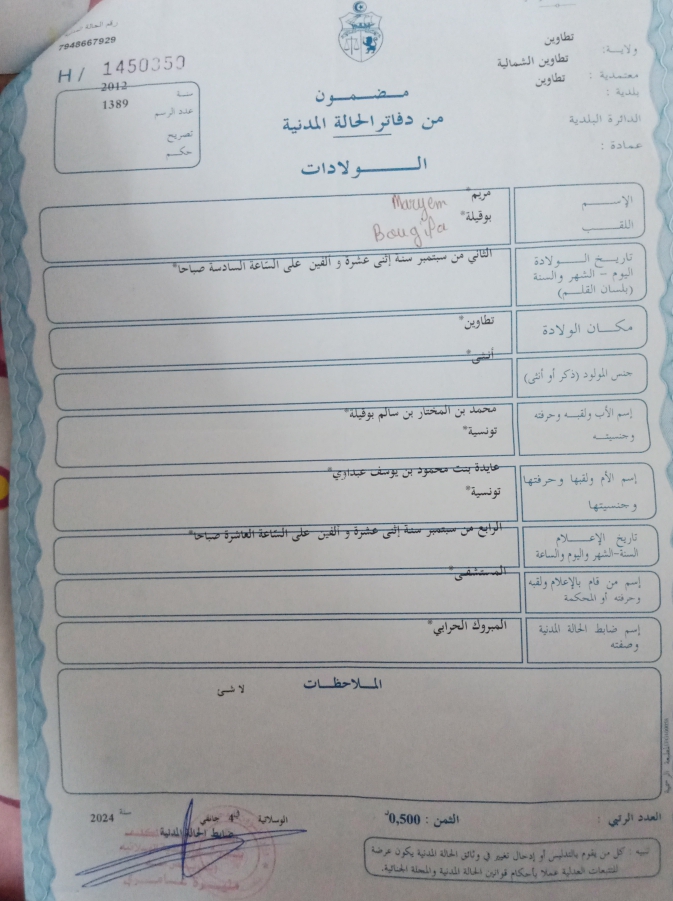 7948667929
H/ 1450350
ولاية: تطاوين
معتمدية : تطاوين الشمالية
بلدية : تطاوين
الدائرة البلدية
عمادة :
سنة 2012
عدد الرسم 1389
تصريح
حكم
مضمون
من دفاتر الحالة المدنية
الولادات
الإسم مريم* Maryem
اللقب بوقيلة* Bougila
تاريخ الولادة
اليوم - الشهر والسنة
(بلسان القلم)
الثاني من سبتمبر سنة إثنى عشرة و ألفين على الساعة السادسة صباحا*
مكان الولادة تطاوين*
جنس المولود (ذكر أو أنثى) أنثى*
إسم الأب ولقبه وحرفته محمد بن المختار بن سالم بوقيلة*
وجنسيته تونسية*
إسم الأم ولقبها وحرفتها عايدة بنت محمود بن يوسف عبداوي*
وجنسيتها تونسية*
تاريخ الإعلام
السنة-الشهر واليوم والساعة
الرابع من سبتمبر سنة إثنى عشرة و ألفين على الساعة العاشرة صباحا*
إسم من قام بالإعلام ولقبه
وحرفته أو المحكمة
المستشفى*
إسم ضابط الحالة المدنية
وصفته
المبروك الحرابي*
الملاحظات
لا شئ
العدد الرتبي :
الثمن : 0,500د
الوسلاتية في 4 جانفي سنة 2024
ضابط الحالة المدنية
تنبيه : كل من يقوم بالتدليس أو إدخال تغيير في وثائق الحالة المدنية يكون عرضة
للتتبعات العدلية عملا بأحكام قوانين الحالة المدنية والمجلة الجنائية.